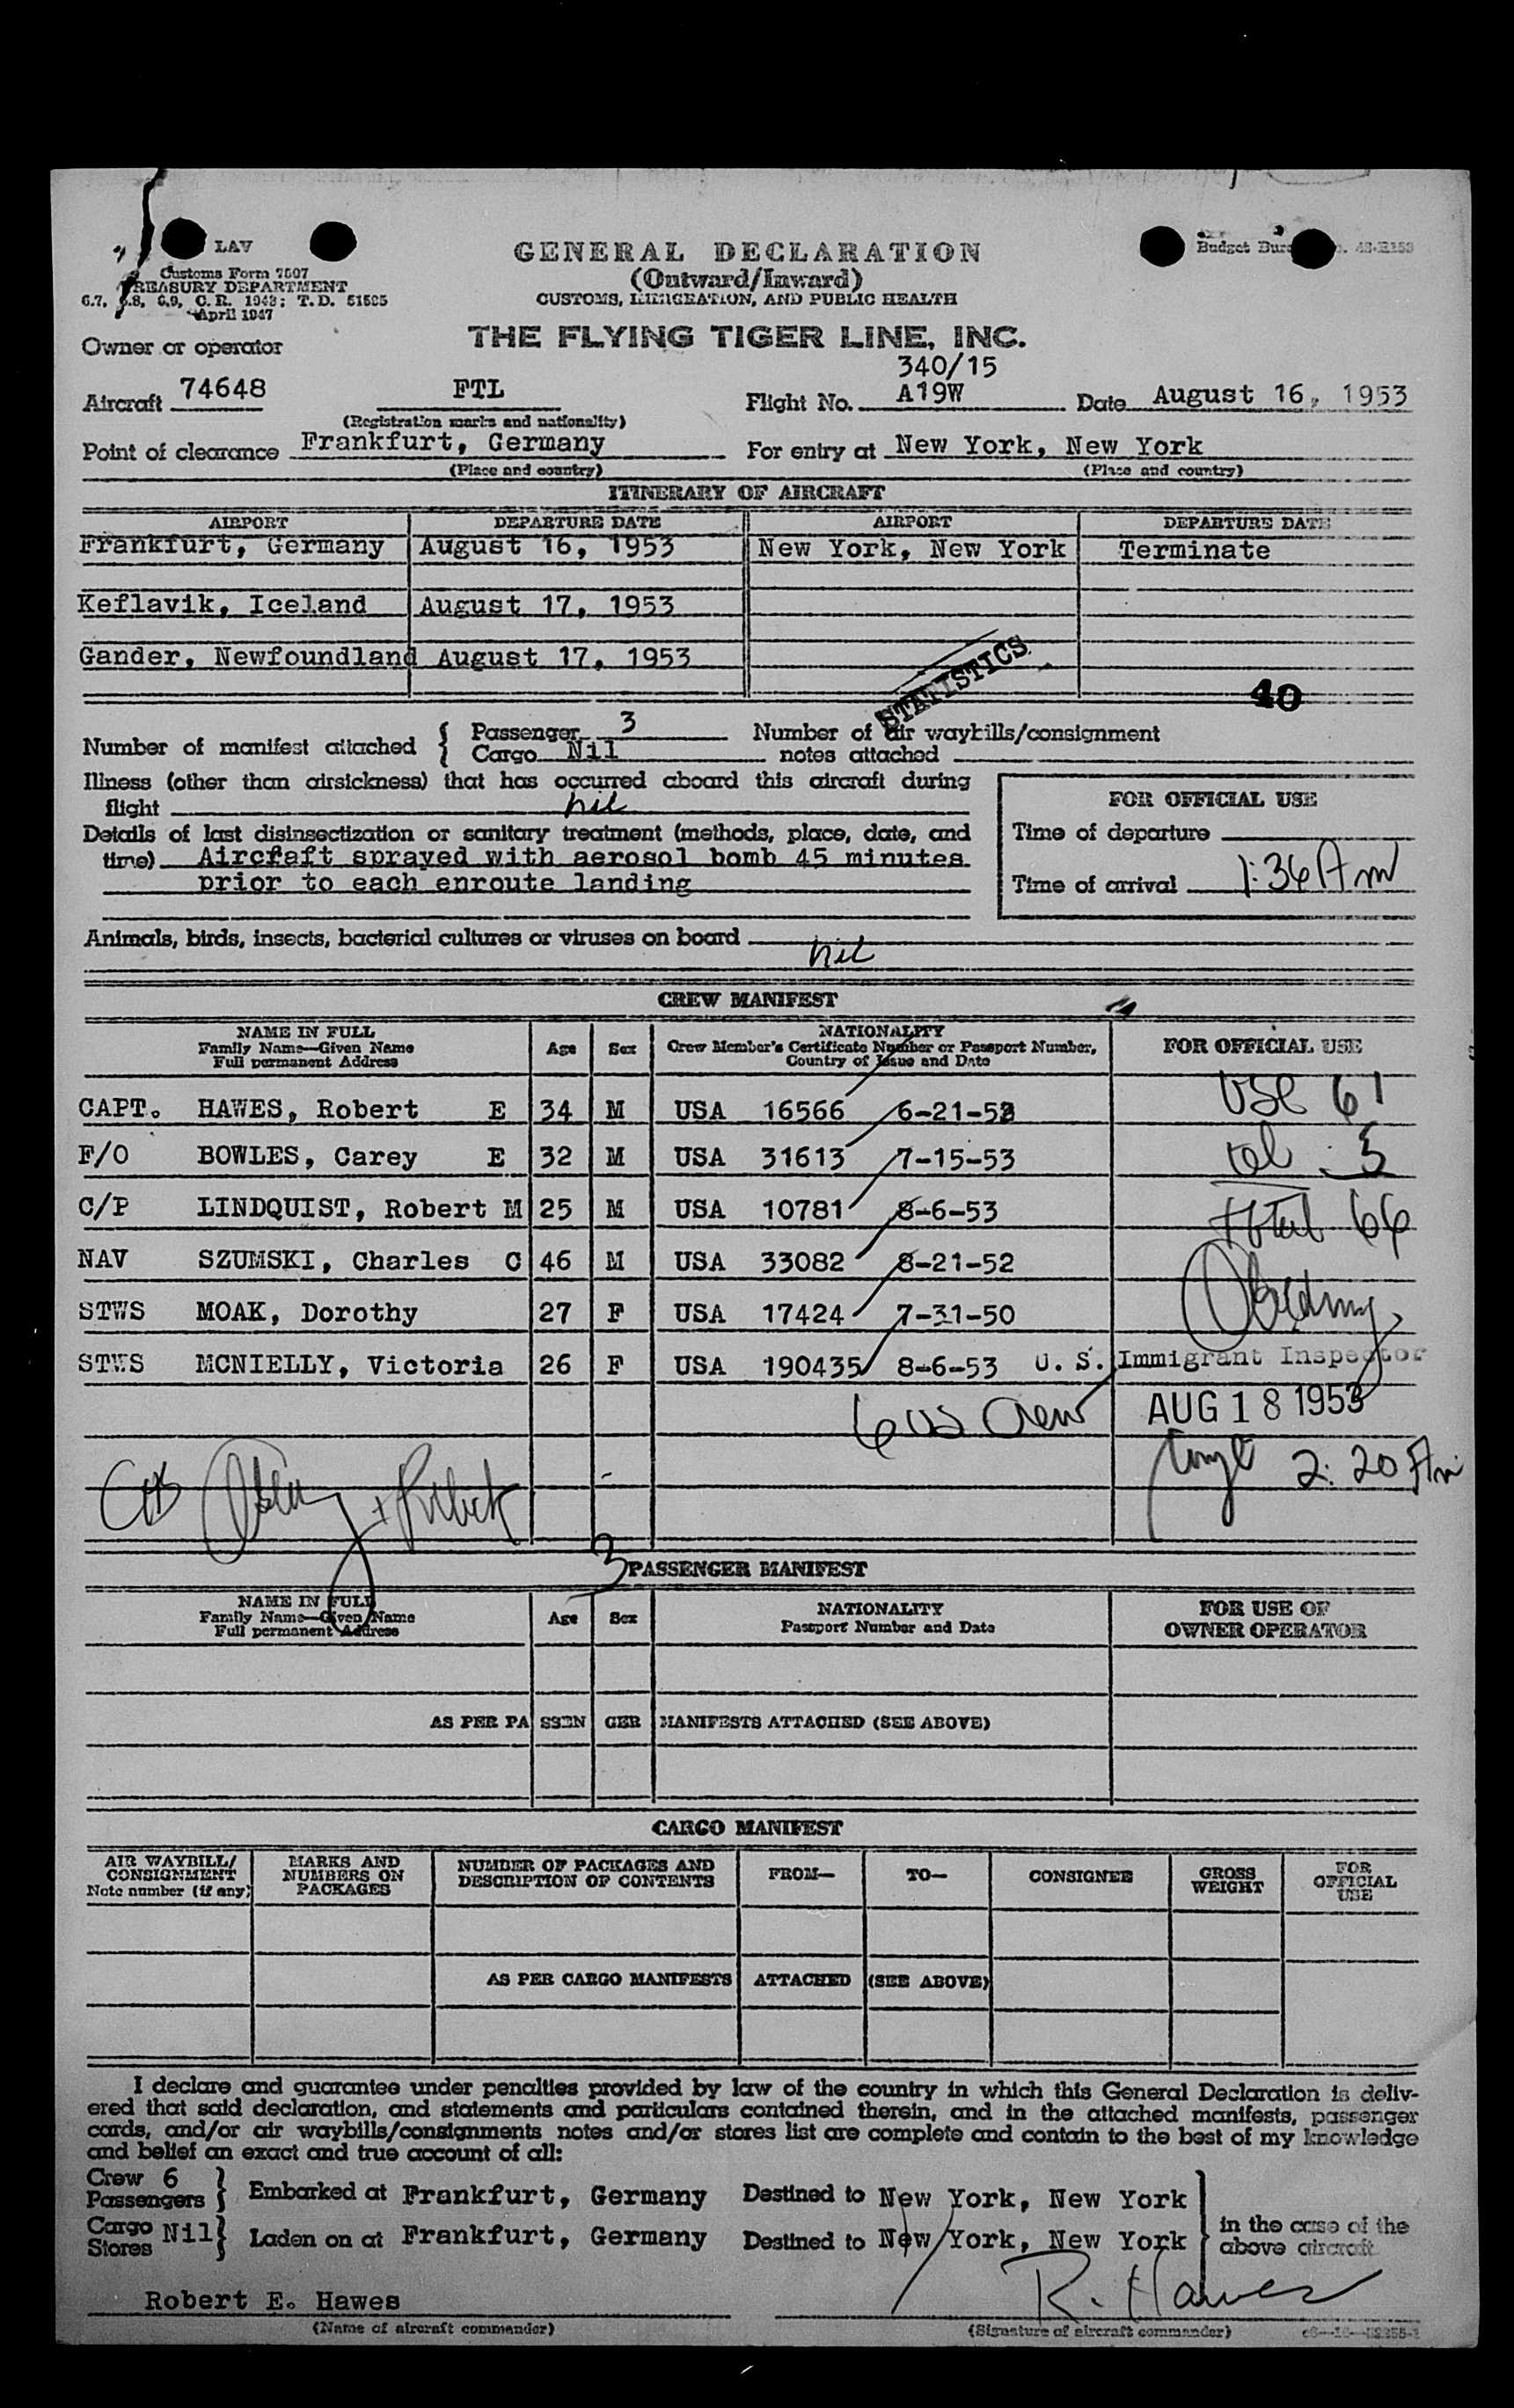 LAV
Customs Form 7507
TREASURY DEPARTMENT
6.7, 6.8, 6.9, C.R. 1943; T.D. 51505
April 1947
GENERAL DECLARATION
(Outward/Inward)
CUSTOMS, IMMIGRATION, AND PUBLIC HEALTH
Budget
Owner or operator
THE FLYING TIGER LINE, INC.
340/15
Aircraft 74648 FTL Flight No. A19W Date August 16, 1953
(Registration marks and nationality)
Point of clearance Frankfurt, Germany For entry at New York, New York
(Place and country) (Place and country)
ITINERARY OF AIRCRAFT
AIRPORT DEPARTURE DATE AIRPORT DEPARTURE DATE
Frankfurt, Germany August 16, 1953 New York, New York Terminate
Keflavik, Iceland August 17, 1953
Gander, Newfoundland August 17, 1953
STATISTICS
40
Number of manifest attached { Passenger 3 Number of air waybills/consignment
Cargo Nil notes attached
Illness (other than airsickness) that has occurred aboard this aircraft during
flight nil
FOR OFFICIAL USE
Details of last disinsectization or sanitary treatment (methods, place, date, and
time) Aircraft sprayed with aerosol bomb 45 minutes
prior to each enroute landing
Time of departure
Time of arrival 1:36 Am
Animals, birds, insects, bacterial cultures or viruses on board nil
CREW MANIFEST
NAME IN FULL
Family Name—Given Name
Full permanent Address
Age Sex
NATIONALITY
Crew Member's Certificate Number or Passport Number,
Country of Issue and Date
FOR OFFICIAL USE
CAPT. HAWES, Robert E 34 M USA 16566 6-21-53 USC 61
F/O BOWLES, Carey E 32 M USA 31613 7-15-53 5
C/P LINDQUIST, Robert M 25 M USA 10781 8-6-53 total 66
NAV SZUMSKI, Charles C 46 M USA 33082 8-21-52
STWS MOAK, Dorothy 27 F USA 17424 7-31-50
STWS MCNIELLY, Victoria 26 F USA 190435 8-6-53 U. S. Immigrant Inspector
6 US Crew AUG 18 1953
2:20 Am
3
PASSENGER MANIFEST
NAME IN FULL
Family Name—Given Name
Full permanent Address
Age Sex
NATIONALITY
Passport Number and Date
FOR USE OF
OWNER OPERATOR
AS PER PASSENGER MANIFESTS ATTACHED (SEE ABOVE)
CARGO MANIFEST
AIR WAYBILL/
CONSIGNMENT
Note number (if any)
MARKS AND
NUMBERS ON
PACKAGES
NUMBER OF PACKAGES AND
DESCRIPTION OF CONTENTS
FROM— TO— CONSIGNEE
GROSS
WEIGHT
FOR
OFFICIAL
USE
AS PER CARGO MANIFESTS ATTACHED (SEE ABOVE)
I declare and guarantee under penalties provided by law of the country in which this General Declaration is deliv-
ered that said declaration, and statements and particulars contained therein, and in the attached manifests, passenger
cards, and/or air waybills/consignments notes and/or stores list are complete and contain to the best of my knowledge
and belief an exact and true account of all:
Crew 6
Passengers } Embarked at Frankfurt, Germany Destined to New York, New York
Cargo Nil
Stores } Laden on at Frankfurt, Germany Destined to New York, New York
in the case of the
above aircraft
Robert E. Hawes R. Hawes
(Name of aircraft commander) (Signature of aircraft commander)